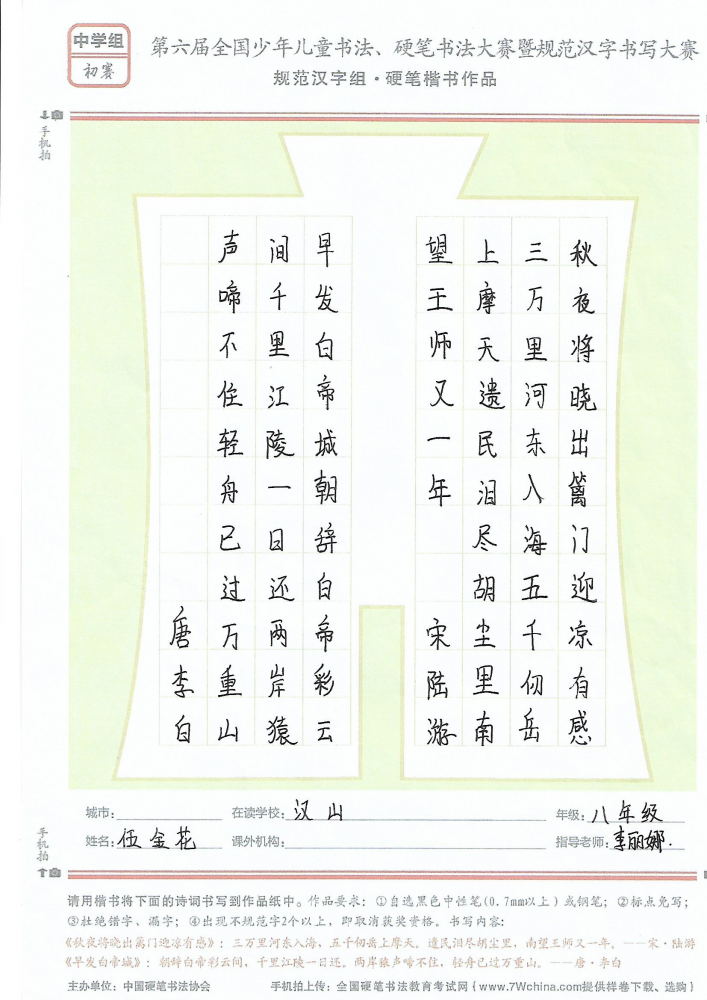 中学组
初赛
第六届全国少年儿童书法、硬笔书法大赛暨规范汉字书写大赛
规范汉字组·硬笔楷书作品
手机拍
秋夜将晓出篱门迎凉有感
三万里河东入海五千仞岳
上摩天遗民泪尽胡尘里南
望王师又一年 宋陆游
早发白帝城朝辞白帝彩云
间千里江陵一日还两岸猿
声啼不住轻舟已过万重山
唐李白
城市: 在读学校: 汉山 年级: 八年级
姓名: 伍金花 课外机构: 指导老师: 李丽娜.
手机拍
请用楷书将下面的诗词书写到作品纸中。作品要求：①自选黑色中性笔(0.7mm以上)或钢笔；②标点免写；
③杜绝错字、漏字；④出现不规范字2个以上，即取消获奖资格。书写内容：
《秋夜将晓出篱门迎凉有感》：三万里河东入海，五千仞岳上摩天。遗民泪尽胡尘里，南望王师又一年。——宋·陆游
《早发白帝城》：朝辞白帝彩云间，千里江陵一日还。两岸猿声啼不住，轻舟已过万重山。——唐·李白
主办单位：中国硬笔书法协会 手机拍上传：全国硬笔书法教育考试网{www.7Wchina.com提供样卷下载、选购}